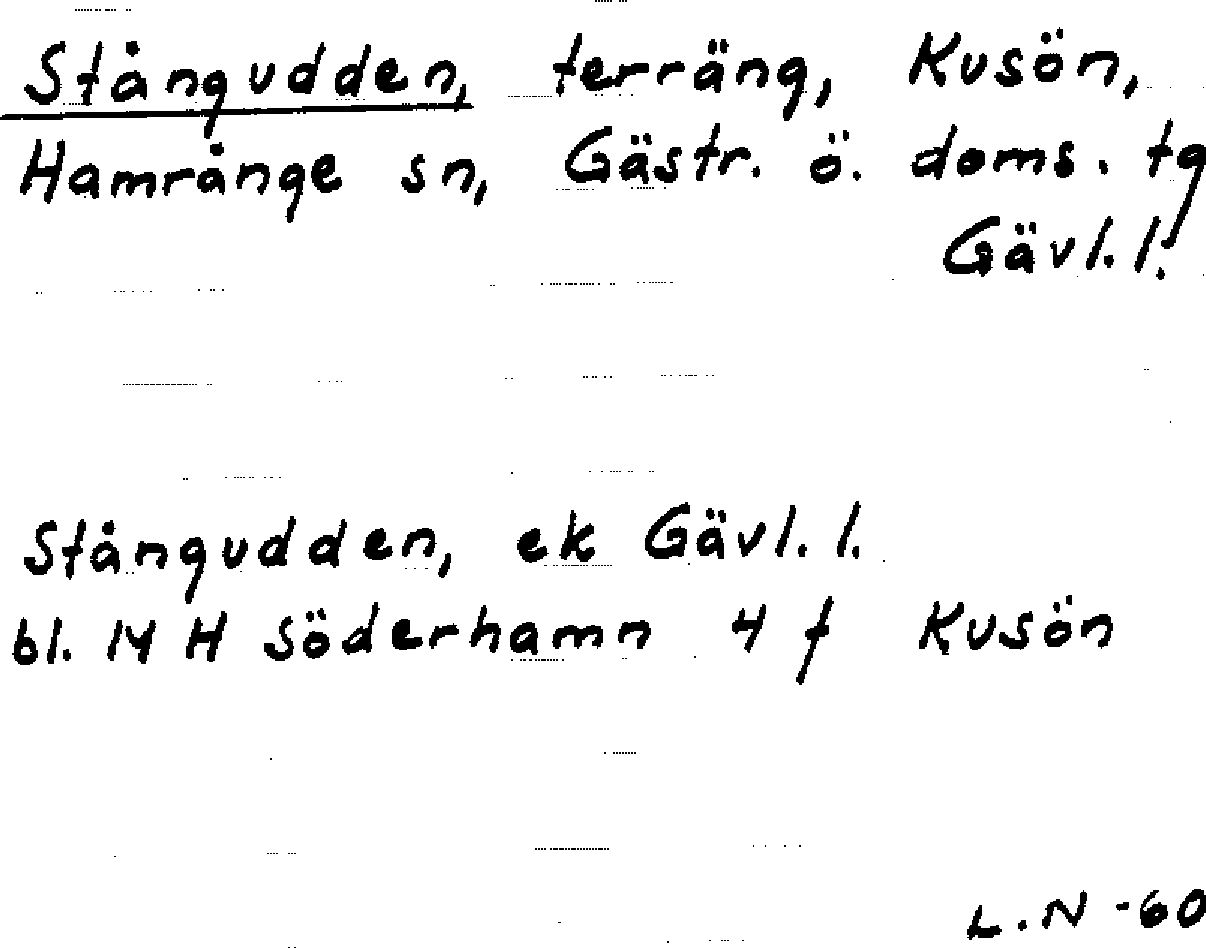 Stångudden, terräng, Kusön,
Hamrånge sn, Gästr. ö. doms. tg
Gävl. l.
Stångudden, ek Gävl. l.
bl. 14 H Söderhamn 4 f Kusön
L. N -60